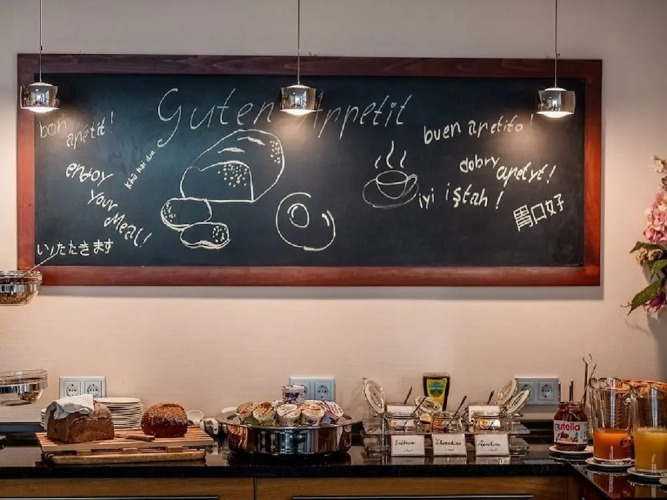 Guten Appetit
bon
apétit!
enjoy
your
Meal!
いただきます
buen apetito!
dobry
apetyt!
iyi iştah!
胃口好
nutella